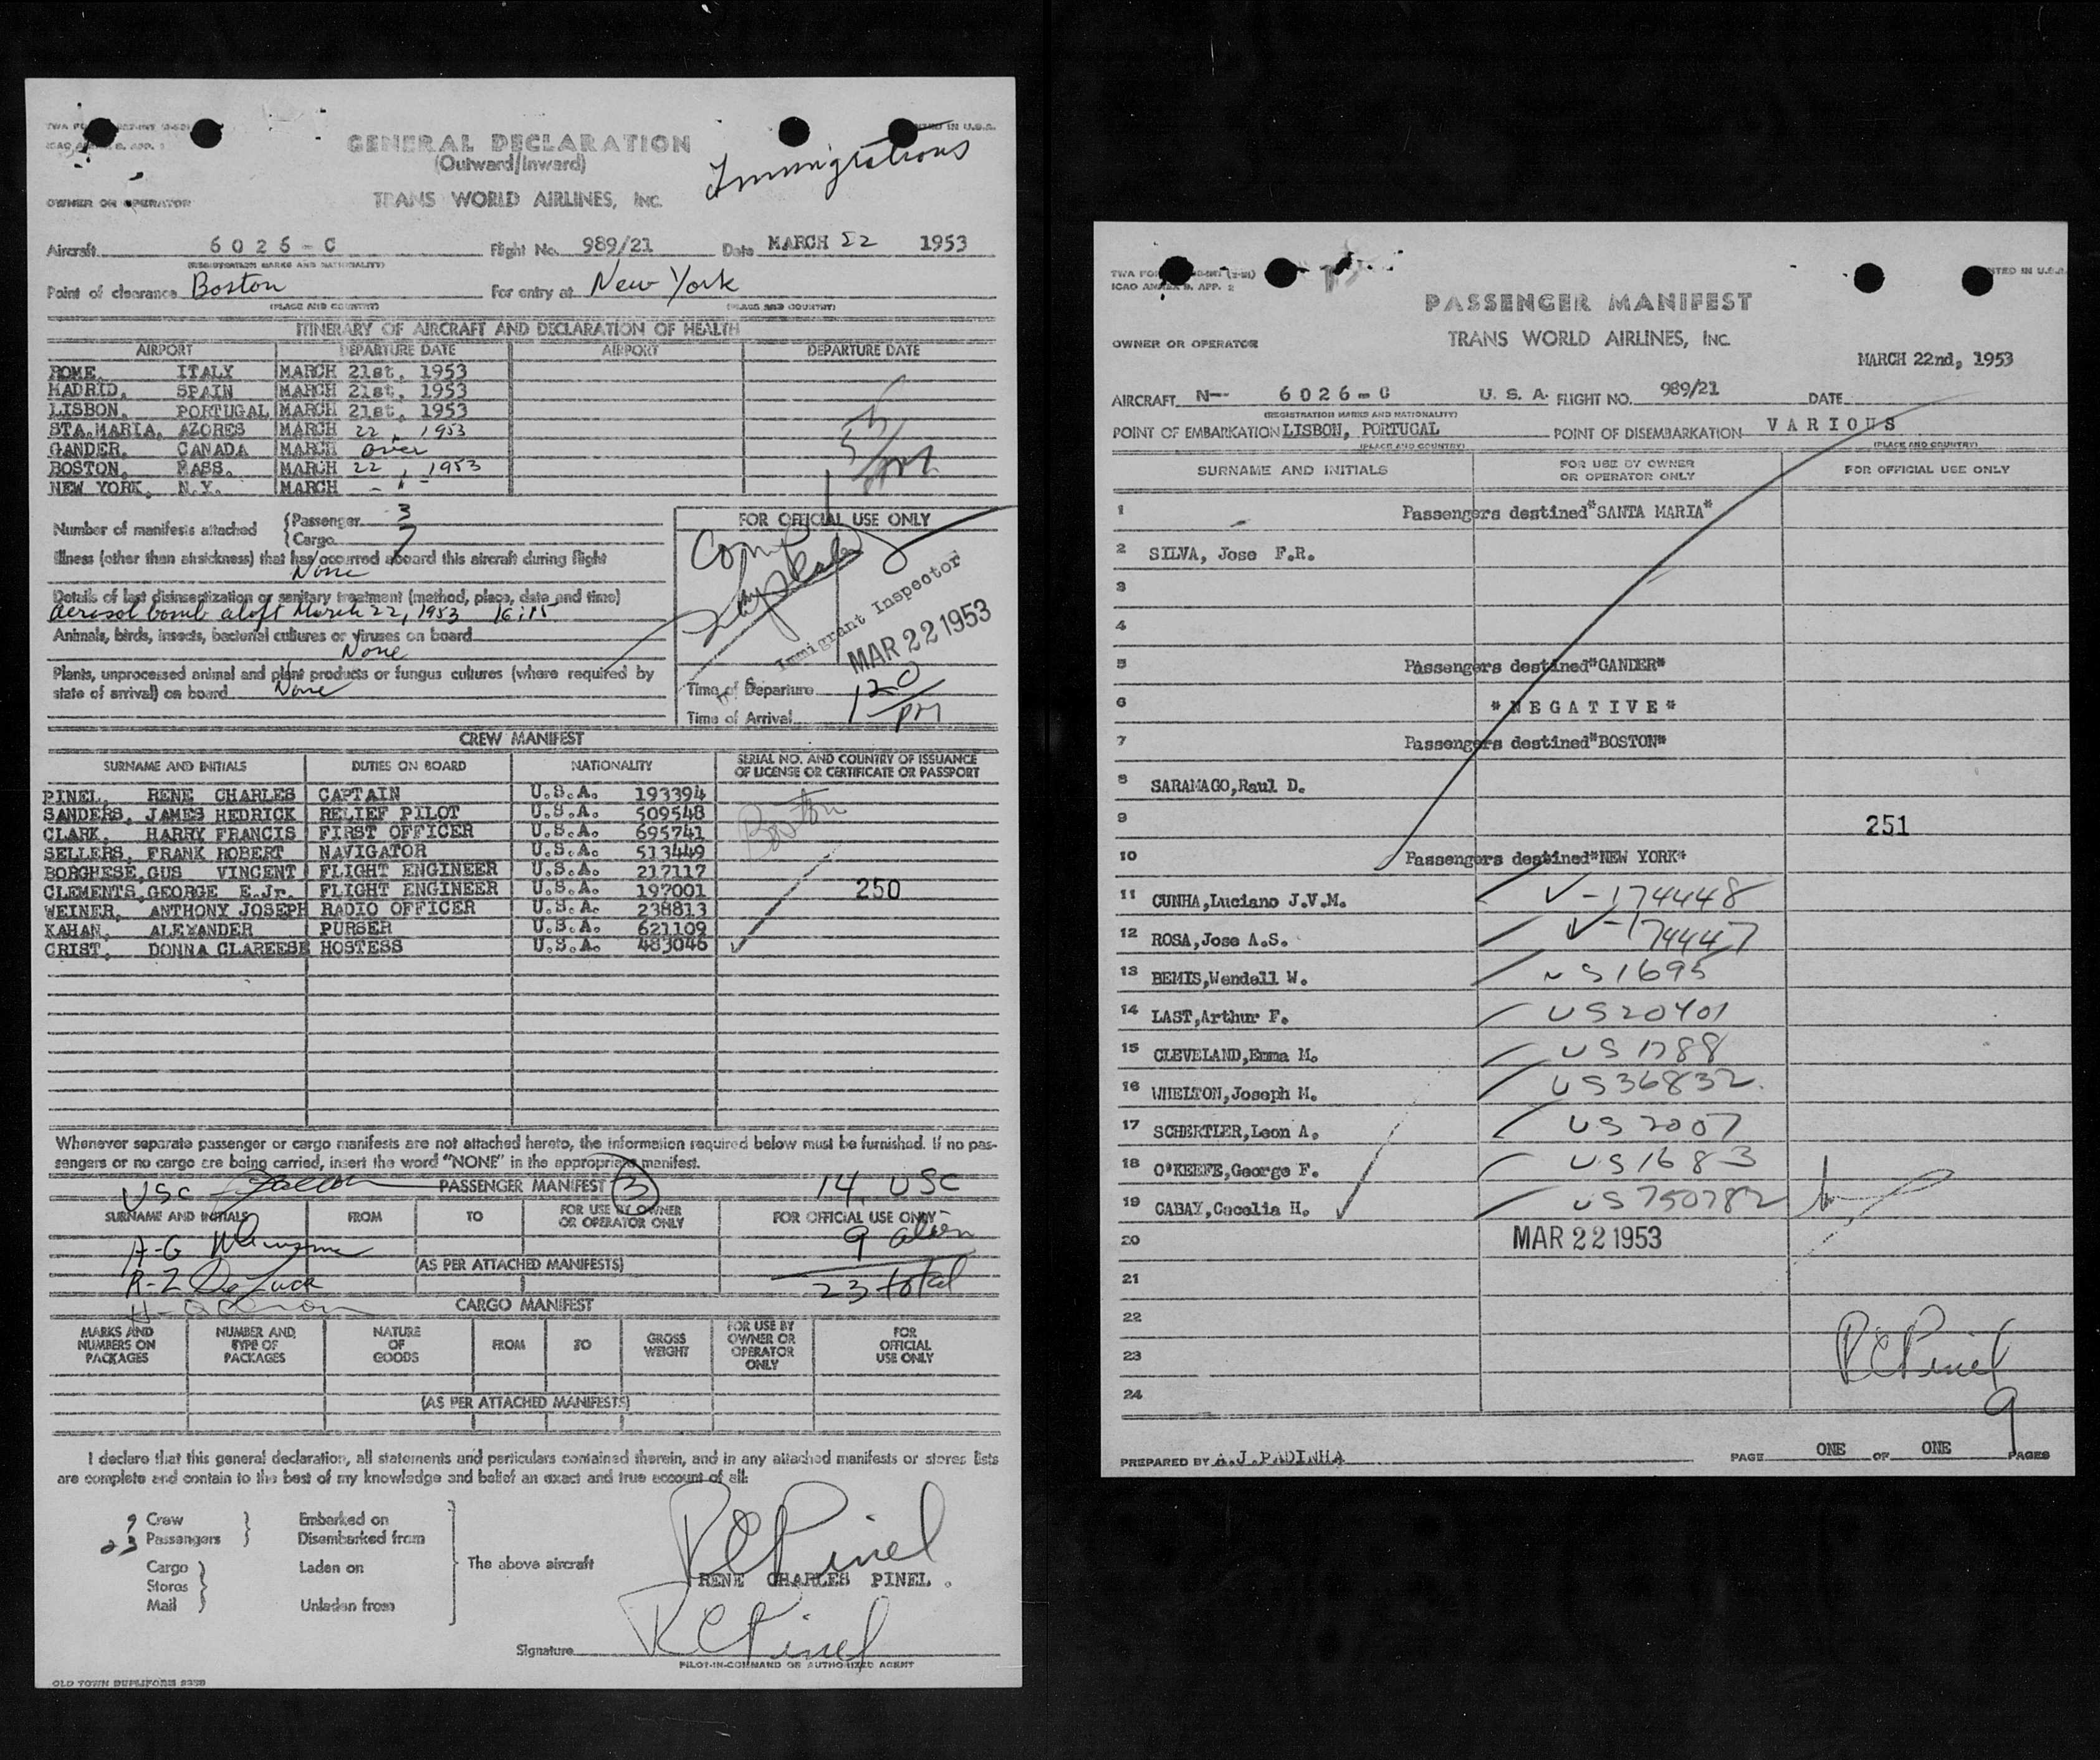 GENERAL DECLARATION
(Outward/Inward)
Immigrations
OWNER OR OPERATOR TRANS WORLD AIRLINES, INC.
Aircraft 6026-C Flight No. 989/21 Date MARCH 22 1953
(REGISTRATION MARKS AND NATIONALITY)
Point of clearance Boston For entry at New York
(PLACE AND COUNTRY) (PLACE AND COUNTRY)
ITINERARY OF AIRCRAFT AND DECLARATION OF HEALTH
AIRPORT DEPARTURE DATE AIRPORT DEPARTURE DATE
ROME, ITALY MARCH 21st, 1953
MADRID, SPAIN MARCH 21st, 1953
LISBON, PORTUGAL MARCH 21st, 1953
STA.MARIA, AZORES MARCH 22, 1953
GANDER, CANADA MARCH over
BOSTON, MASS. MARCH 22, 1953
NEW YORK, N.Y. MARCH
Number of manifests attached {Passenger 3
{Cargo 7
FOR OFFICIAL USE ONLY
Illness (other than airsickness) that has occurred aboard this aircraft during flight
None
Details of last disinsectization or sanitary treatment (method, place, date and time)
Aerosol bomb aloft March 22, 1953 16:15
Animals, birds, insects, bacterial cultures or viruses on board
None
Plants, unprocessed animal and plant products or fungus cultures (where required by
state of arrival) on board None
Immigrant Inspector
MAR 22 1953
Time of Departure 120
Time of Arrival PM
CREW MANIFEST
SURNAME AND INITIALS DUTIES ON BOARD NATIONALITY SERIAL NO. AND COUNTRY OF ISSUANCE
OF LICENSE OR CERTIFICATE OR PASSPORT
PINEL, RENE CHARLES CAPTAIN U.S.A. 193394
SANDERS, JAMES HEDRICK RELIEF PILOT U.S.A. 509548
CLARK, HARRY FRANCIS FIRST OFFICER U.S.A. 695741
SELLERS, FRANK ROBERT NAVIGATOR U.S.A. 513449
BORGHESE, GUS VINCENT FLIGHT ENGINEER U.S.A. 217117
CLEMENTS, GEORGE E.Jr. FLIGHT ENGINEER U.S.A. 197001
WEINER, ANTHONY JOSEPH RADIO OFFICER U.S.A. 238813
KAHAN, ALEXANDER PURSER U.S.A. 621109
CRIST, DONNA CLAREESE HOSTESS U.S.A. 483046
Boston
250
Whenever separate passenger or cargo manifests are not attached hereto, the information required below must be furnished. If no pas-
sengers or no cargo are being carried, insert the word "NONE" in the appropriate manifest.
USC PASSENGER MANIFEST 3 14 USC
SURNAME AND INITIALS FROM TO FOR USE BY OWNER
OR OPERATOR ONLY FOR OFFICIAL USE ONLY
A-G 9 alien
(AS PER ATTACHED MANIFESTS)
R-Z De Luca 23 total
CARGO MANIFEST
MARKS AND
NUMBERS ON
PACKAGES NUMBER AND
TYPE OF
PACKAGES NATURE
OF
GOODS FROM TO GROSS
WEIGHT FOR USE BY
OWNER OR
OPERATOR
ONLY FOR
OFFICIAL
USE ONLY
(AS PER ATTACHED MANIFESTS)
I declare that this general declaration, all statements and particulars contained therein, and in any attached manifests or stores lists
are complete and contain to the best of my knowledge and belief an exact and true account of all:
9 Crew Embarked on
23 Passengers Disembarked from
Cargo Laden on The above aircraft
Stores
Mail Unladen from
RCPinel
RENE CHARLES PINEL.
Signature RCPinel
PILOT-IN-COMMAND OR AUTHORIZED AGENT
OLD TOWN DUPLIFORM
PASSENGER MANIFEST
OWNER OR OPERATOR TRANS WORLD AIRLINES, INC.
MARCH 22nd, 1953
AIRCRAFT N-- 6026-C U. S. A. FLIGHT NO. 989/21 DATE
(REGISTRATION MARKS AND NATIONALITY)
POINT OF EMBARKATION LISBON, PORTUGAL POINT OF DISEMBARKATION VARIOUS
(PLACE AND COUNTRY) (PLACE AND COUNTRY)
SURNAME AND INITIALS FOR USE BY OWNER
OR OPERATOR ONLY FOR OFFICIAL USE ONLY
1 Passengers destined"SANTA MARIA"
2 SILVA, Jose F.R.
3
4
5 Passengers destined"GANDER"
6 "NEGATIVE"
7 Passengers destined"BOSTON"
8 SARAMAGO,Raul D.
9 251
10 Passengers destined"NEW YORK"
11 CUNHA,Luciano J.V.M. V-174448
12 ROSA,Jose A.S. V-174447
13 BEMIS,Wendell W. US1695
14 LAST,Arthur F. US20401
15 CLEVELAND,Emma M. US1788
16 WHELTON,Joseph M. US36832
17 SCHERTLER,Leon A. US2007
18 O'KEEFE,George F. US1683
19 CABAY,Cecelia H. US750782
20 MAR 22 1953
21
22
23 RCPinel
24 9
PREPARED BY A.J.PADINHA PAGE ONE OF ONE PAGES